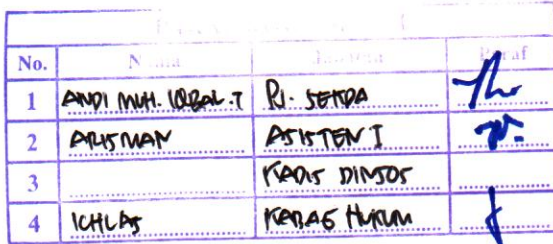 No. Nama Jabatan Paraf
1 ANDI MUH. IQBAL.T Pj. SEKDA
2 ARISMAN ASISTEN I
3 KADIS DINSOS
4 ICHLAS KABAG HUKUM